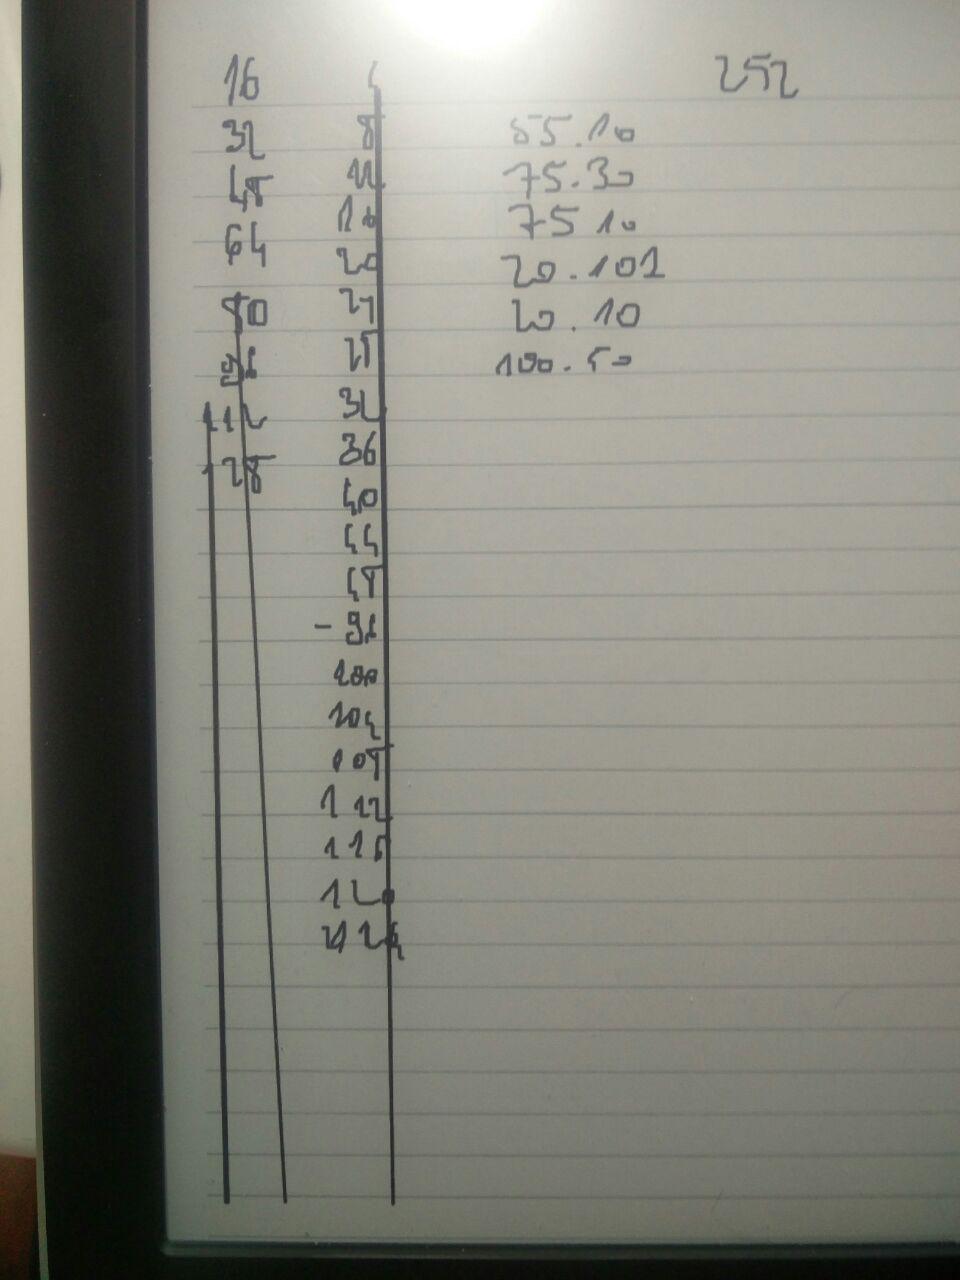 16
32
48
64
80
96
112
128
8
12
16
20
24
28
32
36
40
44
48
- 96
100
104
108
112
116
120
124
252
55.10
75.30
75 10
20.101
20.10
100.50